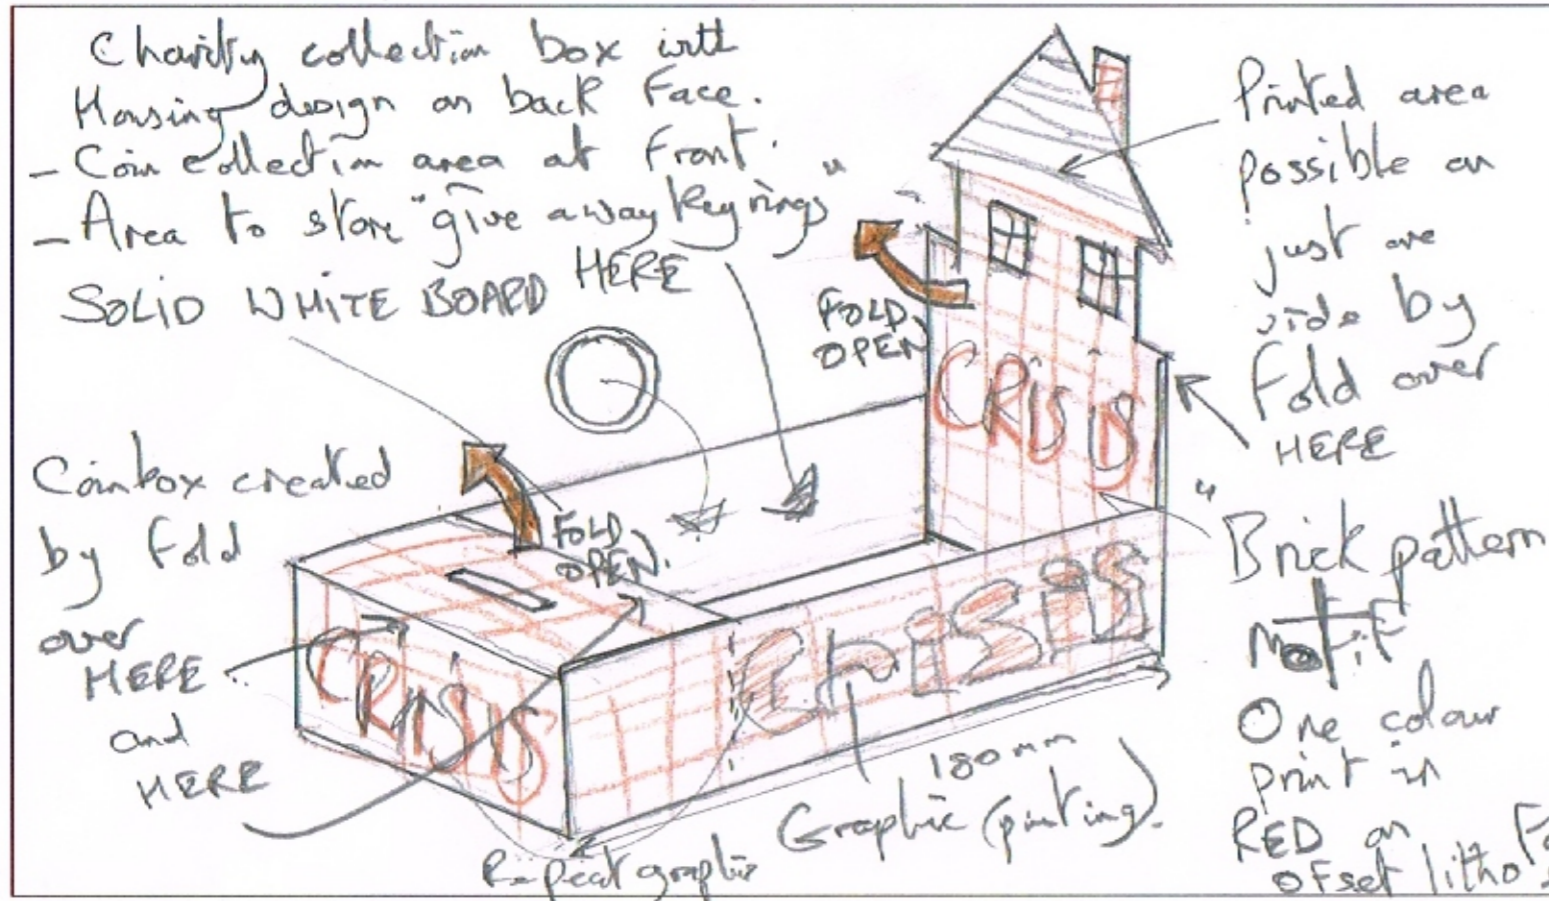 Charity collection box with
Housing design on back Face.
- Coin collection area at front.
- Area to store "give away key rings"
HERE
SOLID WHITE BOARD
FOLD
OPEN
Printed area
possible on
just one
side by
Fold over
HERE
CRISIS
Coinbox created
by fold
over
HERE
and
HERE
FOLD
OPEN.
"Brick pattern
Motif
One colour
print in
RED on
offset litho
CRISIS
CRISIS
180mm
Graphic (printing).
Repeat graphic